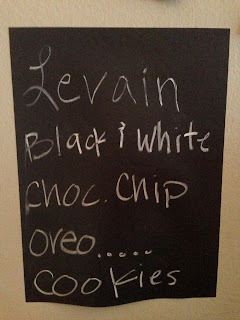 Levain
Black & White
Choc. Chip
Oreo.....
Cookies